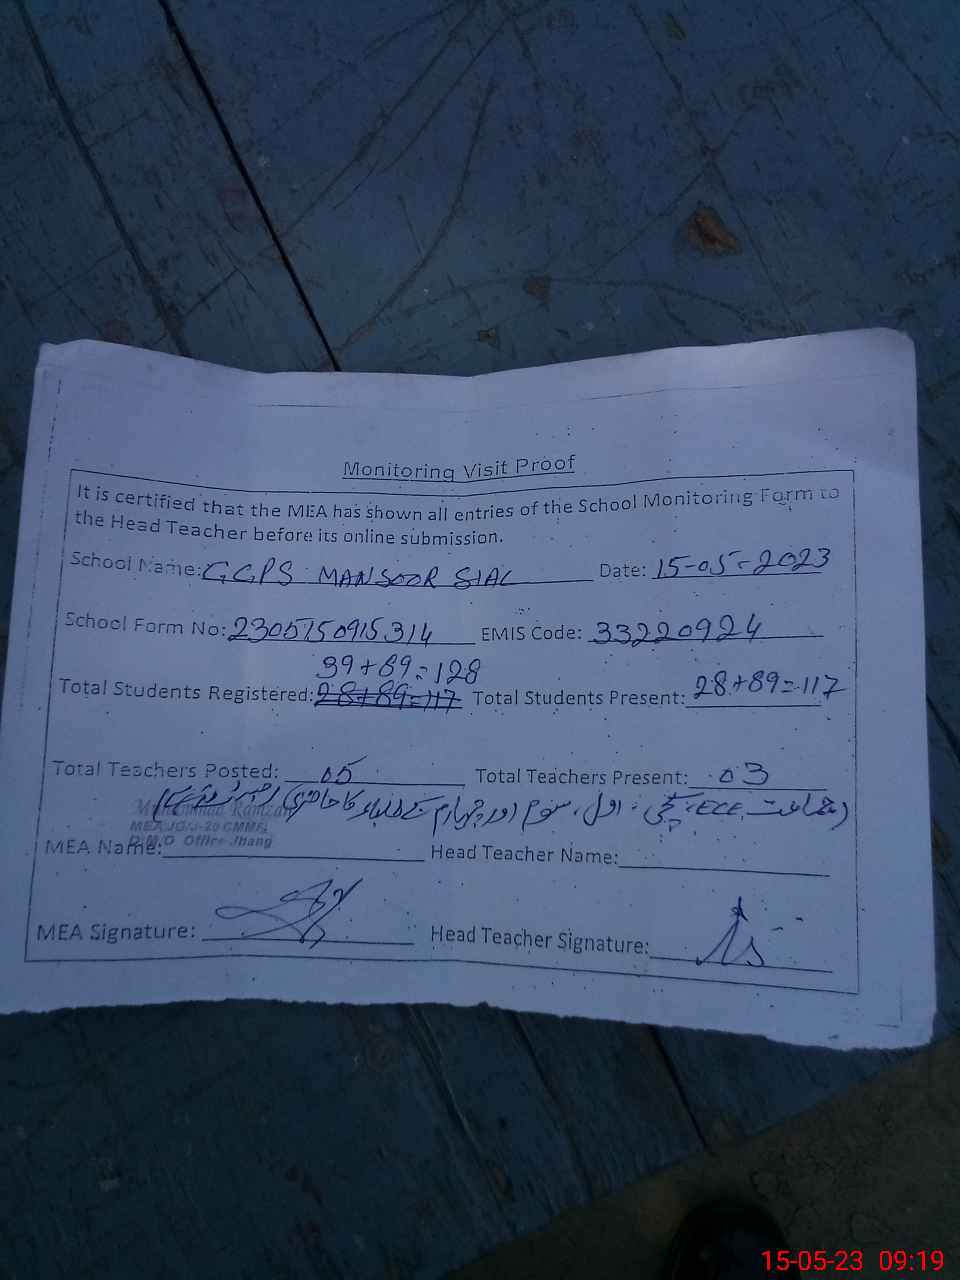 Monitoring Visit Proof
It is certified that the MEA has shown all entries of the School Monitoring Form to
the Head Teacher before its online submission.
School Name: GGPS MANSOOR SIAL Date: 15-05-2023
School Form No: 2305150915314 EMIS Code: 33220924
39+89=128
Total Students Registered: 28+89=117 Total Students Present: 28+89=117
Total Teachers Posted: 05 Total Teachers Present: 03
ECE، کچی، اول، سوم اور چہارم کے طلباء کا حاضری
Muhammad Ramzan
MEA
D.M.O Office Jhang
MEA Name: Head Teacher Name:
MEA Signature: Head Teacher Signature:
15-05-23 09:19